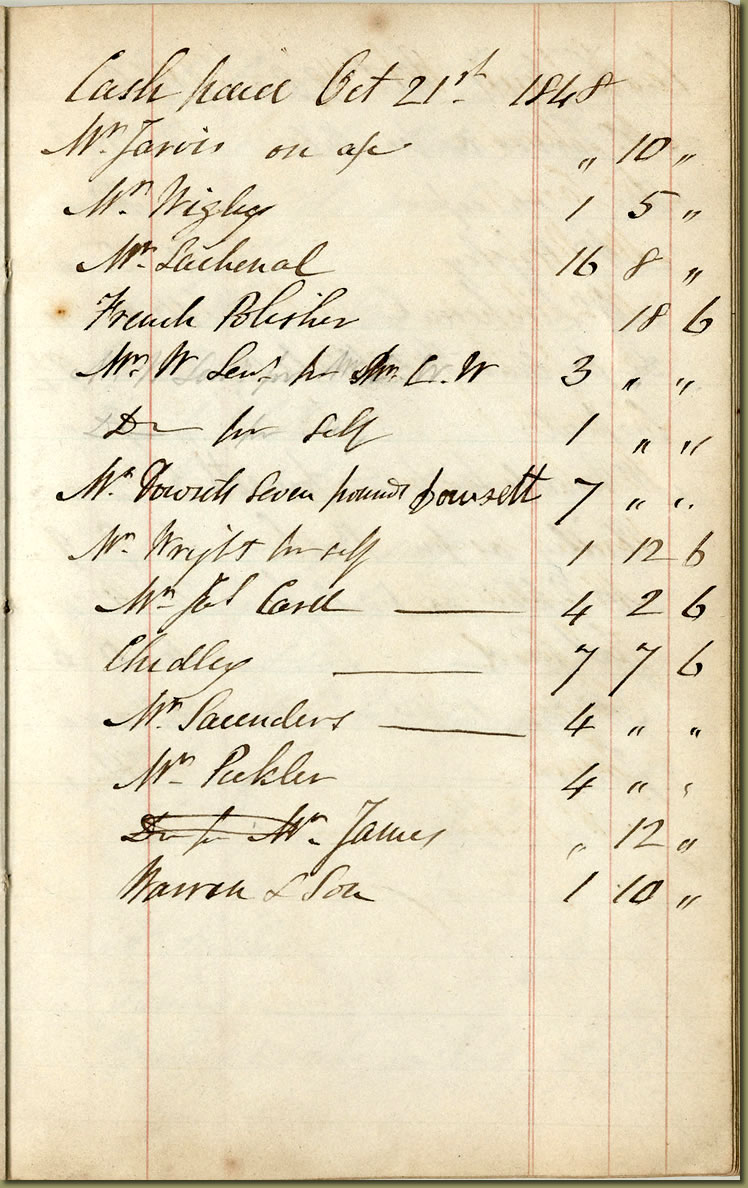 Cash paid Oct 21st 1848
Mr Jarvis on a/c „ 10 „
Mr. Wigby 1 5 „
Mr Lachenal 16 8 „
French Polisher 18 6
Mr. W Senr for Mr. C. W 3 „ „
Do for Self 1 „ „
Mr seven pounds Dowsett 7 „ „
Mr. Wright for self 1 12 6
Mr Jas Card — 4 2 6
Chidley — 7 7 6
Mr. Saunders — 4 „ „
Mr 4 „ „
Do for Mr. James „ 12 „
Warren & Son 1 10 „